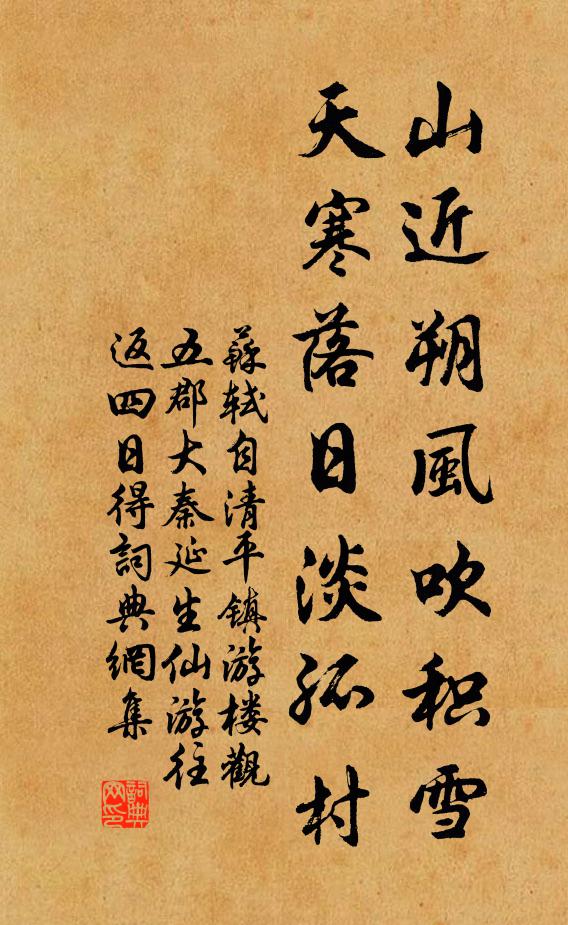 山近朔風吹积雪
天寒落日淡孤村
蘇轼自清平镇游楼觀
五郡大秦延生仙游往
返四日得詞典網集
詞典
网印